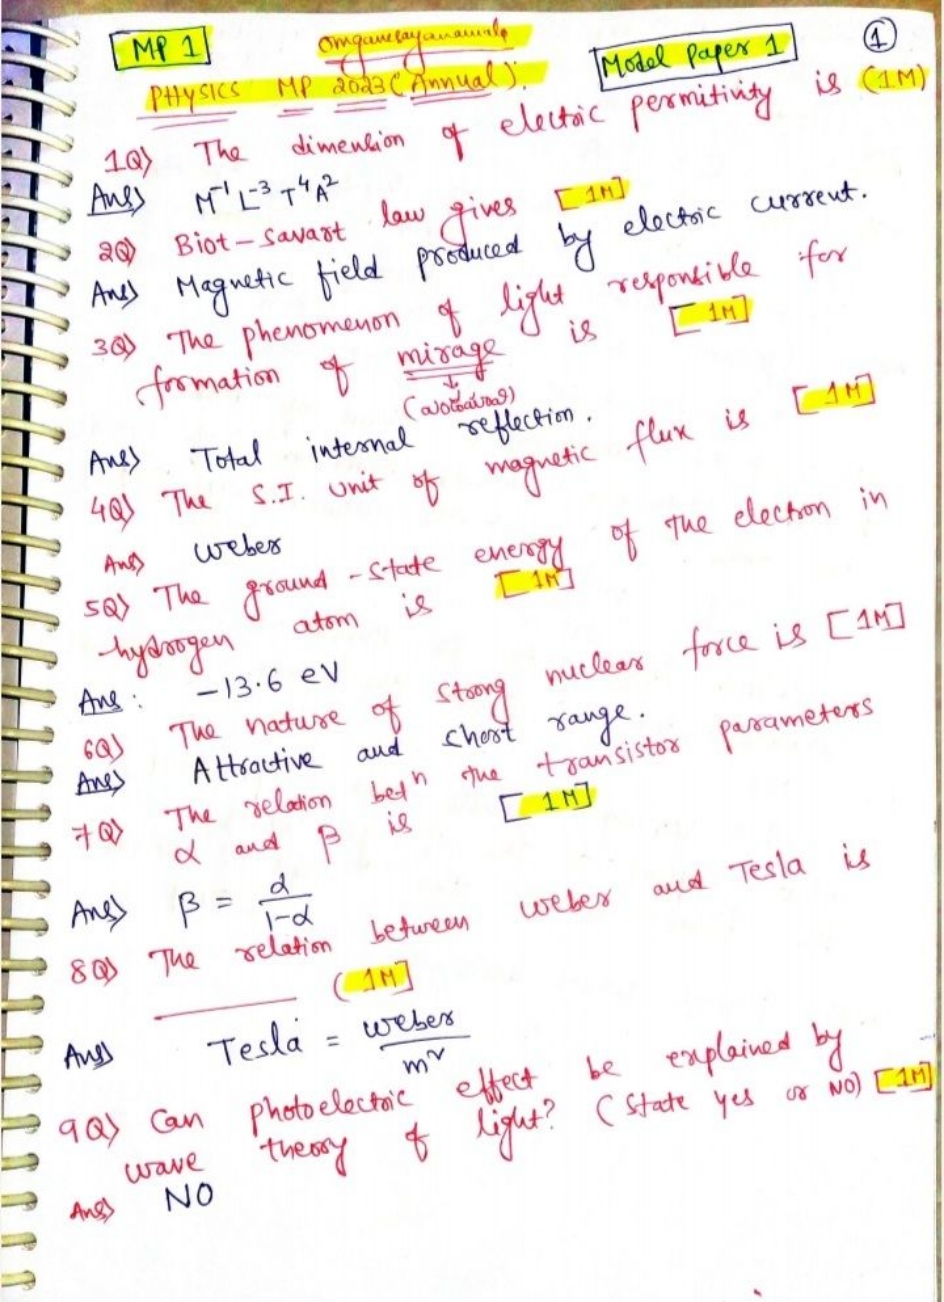 MP 1
omganesayanamaha
Model Paper 1
1
PHYSICS MP 2023 (Annual).
1Q) The dimension of electric permitivity is (1M)
Ans) M⁻¹ L⁻³ T⁴ A²
2Q) Biot-Savart law gives [1M]
Ans) Magnetic field produced by electric current.
3Q) The phenomenon of light responsible for
formation of mirage is [1M]
Ans) Total internal reflection.
4Q) The S.I. unit of magnetic flux is [1M]
Ans) weber
5Q) The ground-state energy of the electron in
hydrogen atom is [1M]
Ans: -13.6 eV
6Q) The nature of strong nuclear force is [1M]
Ans) Attractive and short range.
7Q) The relation betⁿ the transistor parameters
α and β is [1M]
Ans) β = α/1-α
8Q) The relation between weber and Tesla is
_______ (1M]
Ans) Tesla = weber/m²
9Q) Can photoelectric effect be explained by
wave theory of light? (State yes or NO) [1M]
Ans) NO